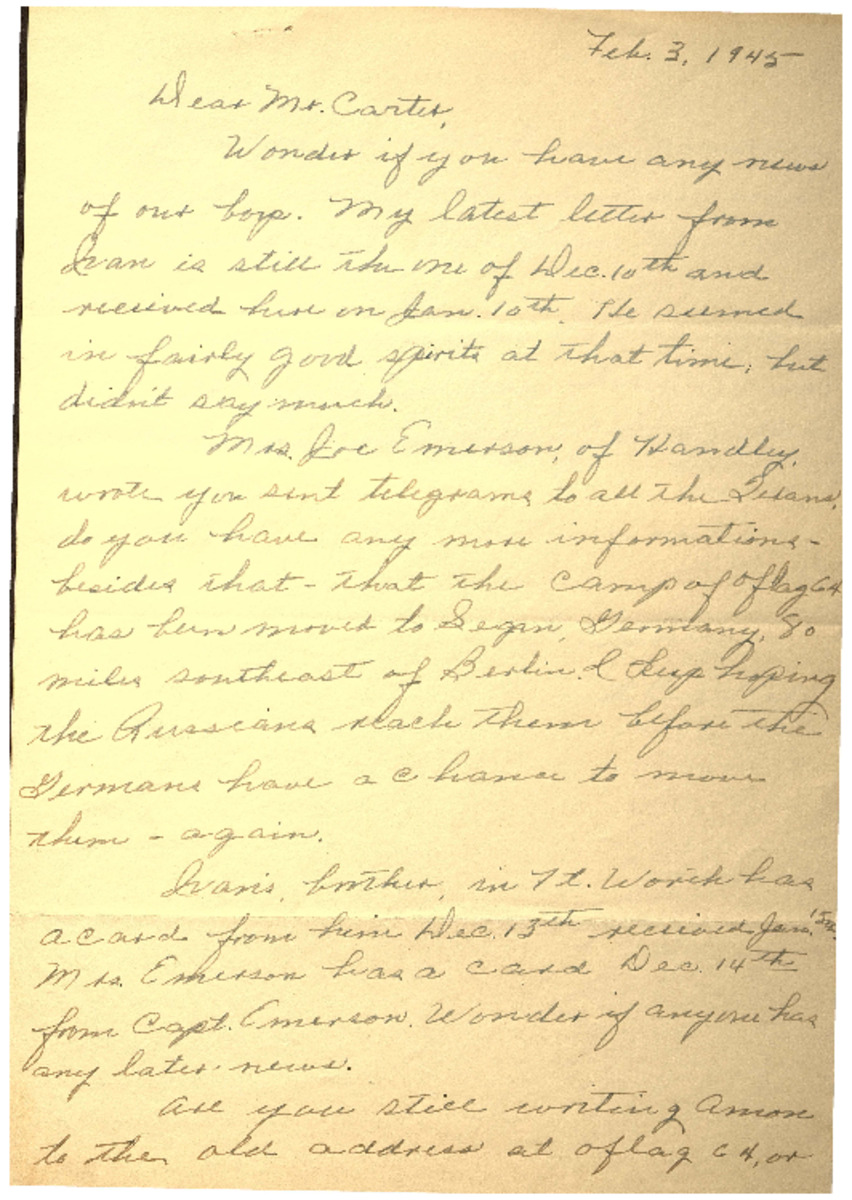 Feb. 3, 1945
Dear Mr. Carter,
Wonder if you have any news
of our boys. My latest letter from
Ivan is still the one of Dec. 10th and
received here on Jan. 10th. He seemed
in fairly good spirits at that time, but
didn't say much.
Mrs. Joe Emerson, of Handley,
wrote you sent telegrams to all the Texans,
do you have any more informations -
besides that - that the camp of Oflag 64
has been moved to Segen, Germany, 80
miles southeast of Berlin. I keep hoping
the Russians reach them before the
Germans have a chance to move
them - again.
Ivan's, brother, in Ft. Worth has
a card from him Dec. 13th received Jan.
Mrs. Emerson has a card Dec. 14th
from Capt. Emerson. Wonder if anyone has
any later news.
Are you still writing Amon
to the old address at oflag 64, or